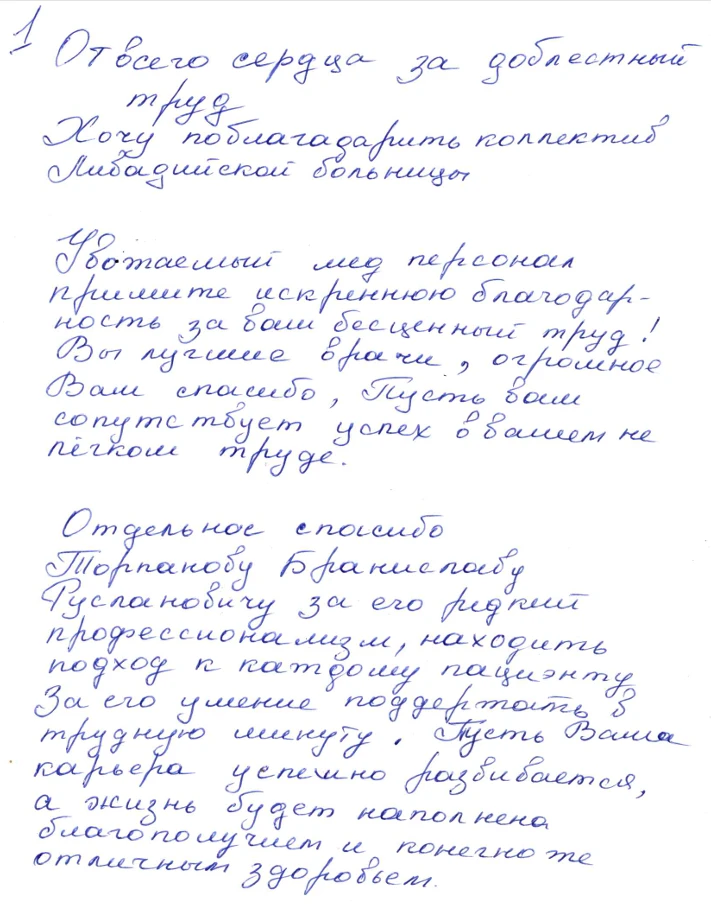 1
От всего сердца за доблестный
труд
Хочу поблагадарить коллектив
Ливадийской больницы
Уважаемый мед персонал
примите искреннюю благодар-
ность за ваш бесценный труд!
Вы лучшие врачи, огромное
Вам спасибо, Пусть вам
сопутствует успех в вашем не
лёгком труде.
Отдельное спасибо
Торпанову Браниславу
Руслановичу за его редкий
профессионализм, находить
подход к каждому пациэнту
За его умение поддержать в
трудную минуту. Пусть Ваша
карьера успешно развивается,
а жизнь будет наполнена
благополучием и конечно же
отличным здоровьем.